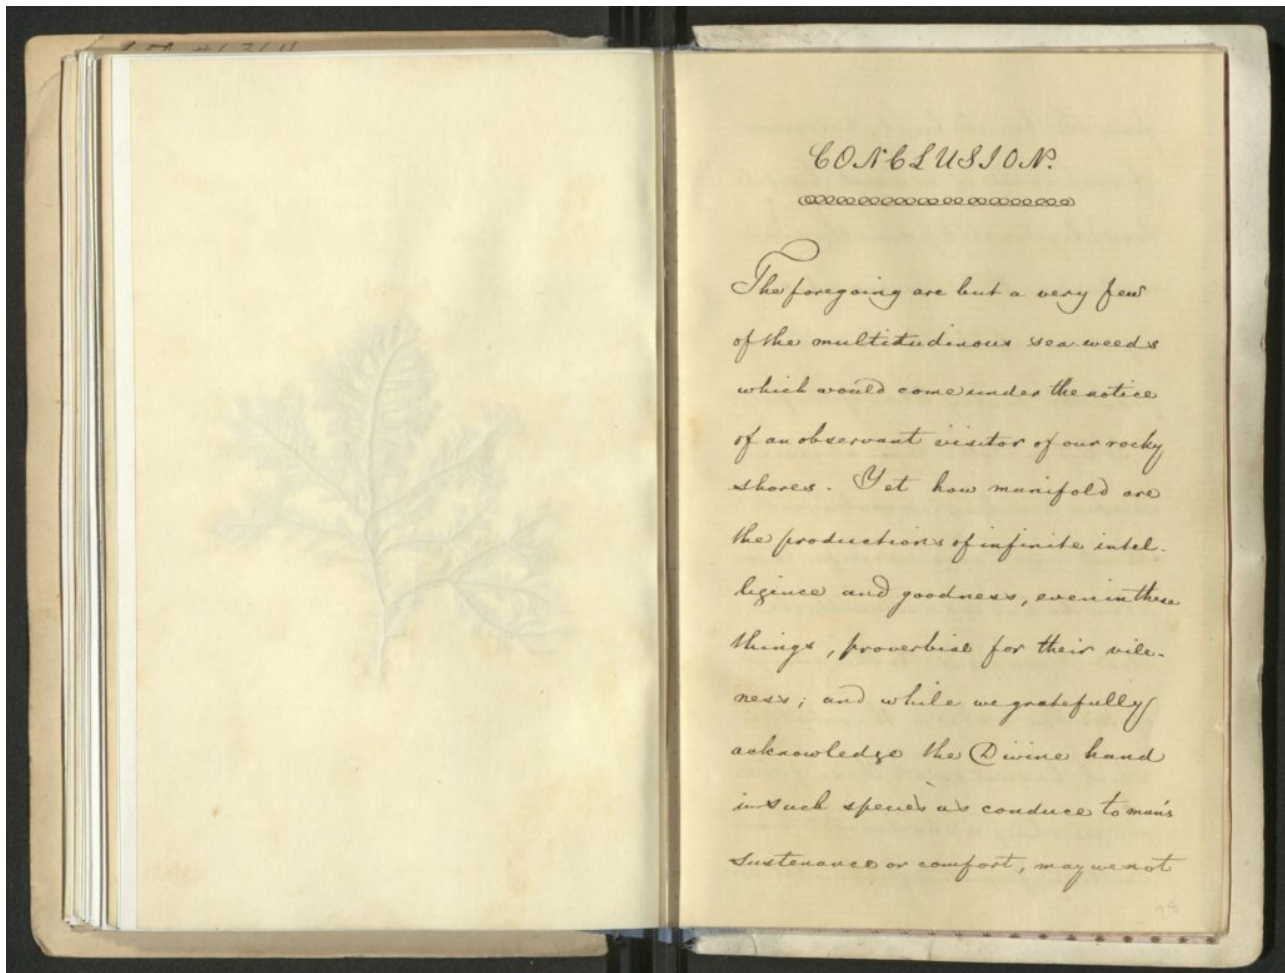 CONCLUSION.
The foregoing are but a very few
of the multitudinous sea-weeds
which would come under the notice
of an observant visitor of our rocky
shores. Yet how manifold are
the productions of infinite intel-
ligence and goodness, even in these
things, proverbial for their vile-
ness; and while we gratefully
acknowledge the Divine hand
in such species as conduce to man's
sustenance or comfort, may we not